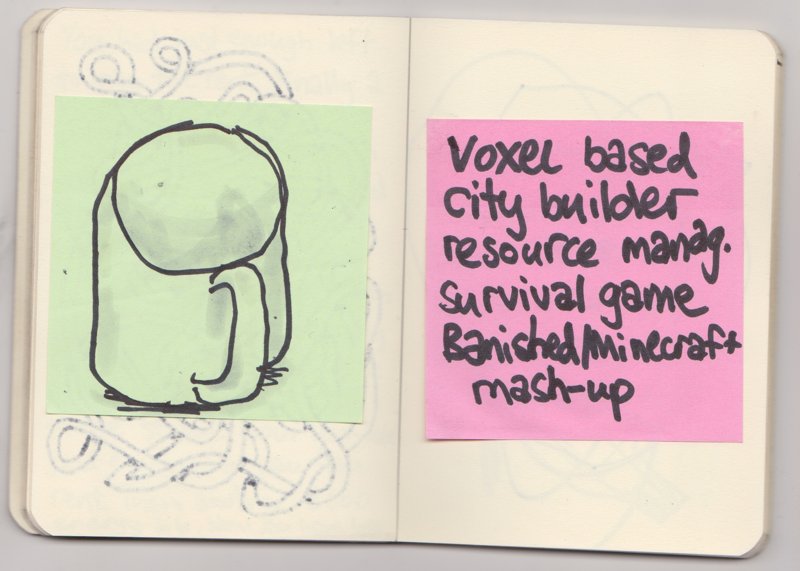 Voxel based
city builder
resource manag.
survival game
Banished/Minecraft
mash-up